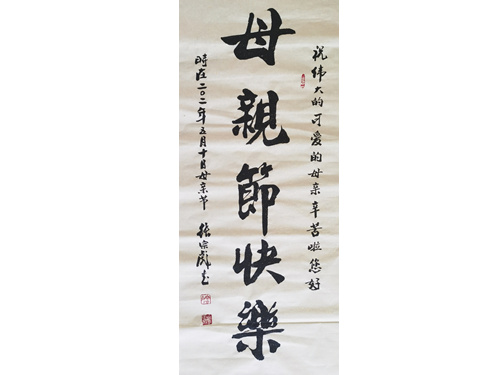 祝伟大的可爱的母亲辛苦啦您好
母親節快樂
時在二〇二一年五月十日母亲节
張宗彪书